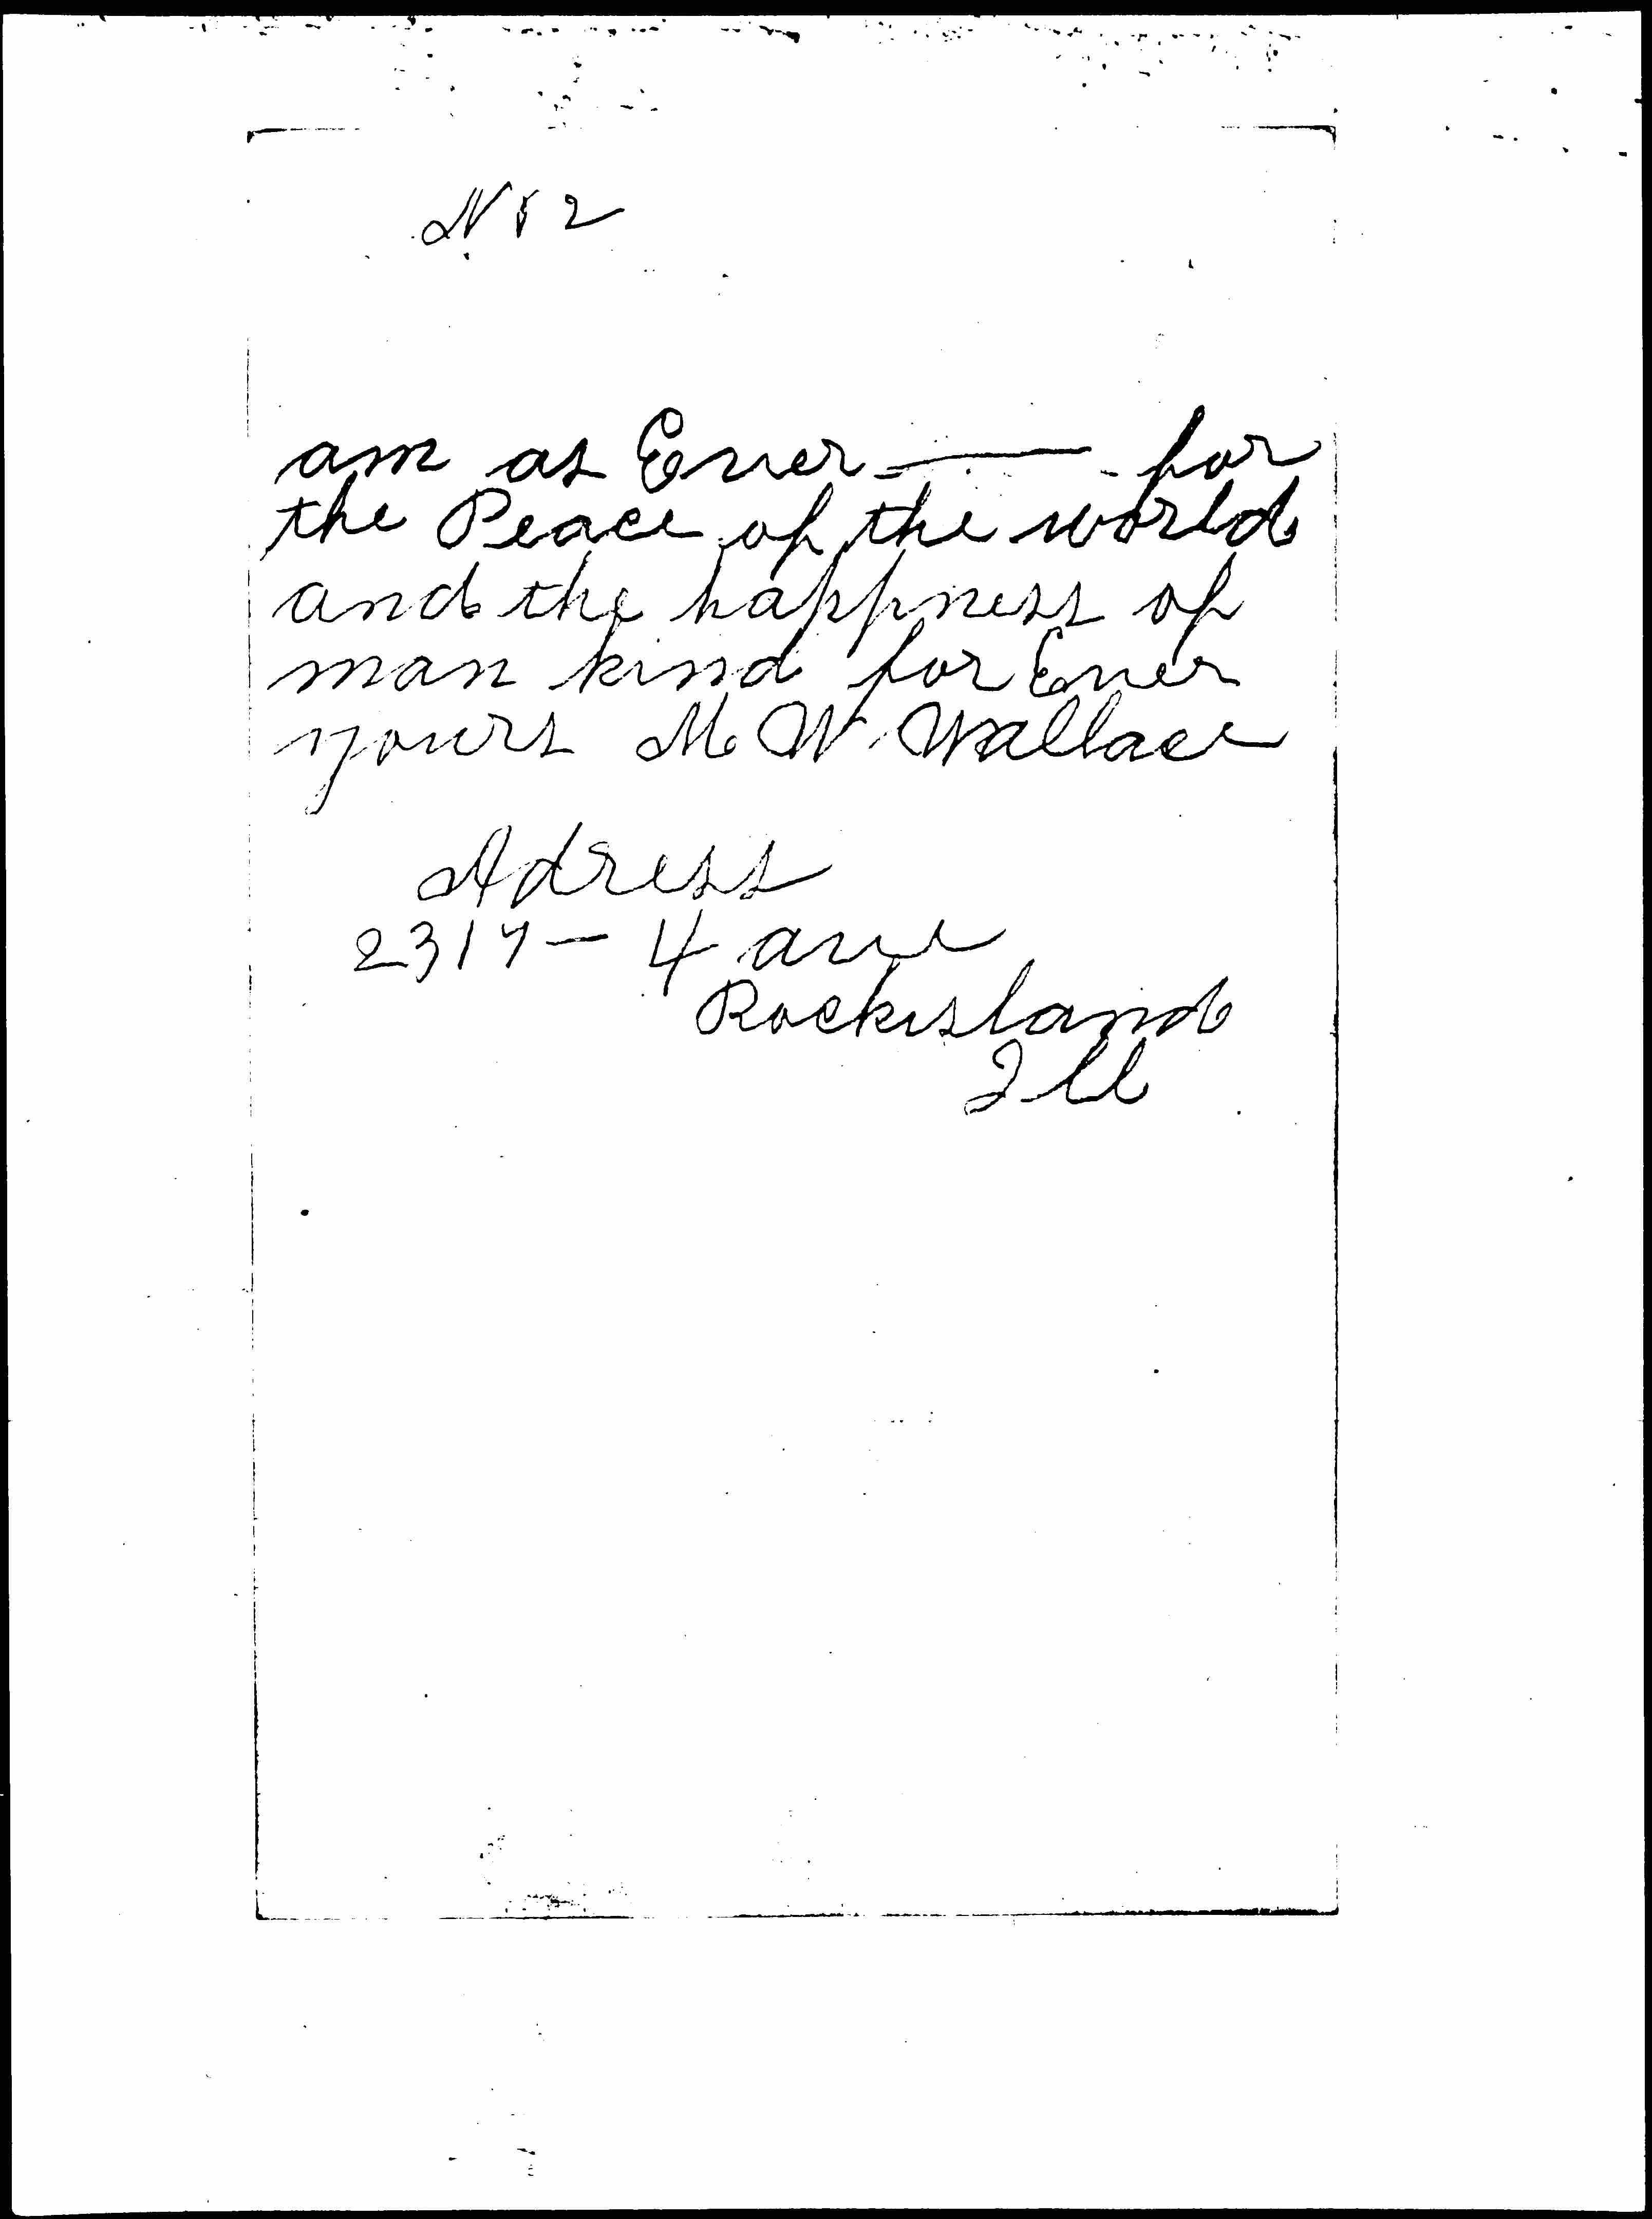 No 2
am as Ever — for
the Peace of the world
and the happness of
man kind for Ever
yours M W Wallace
Adress
2317 – 4 ave
Rockisland
Ill